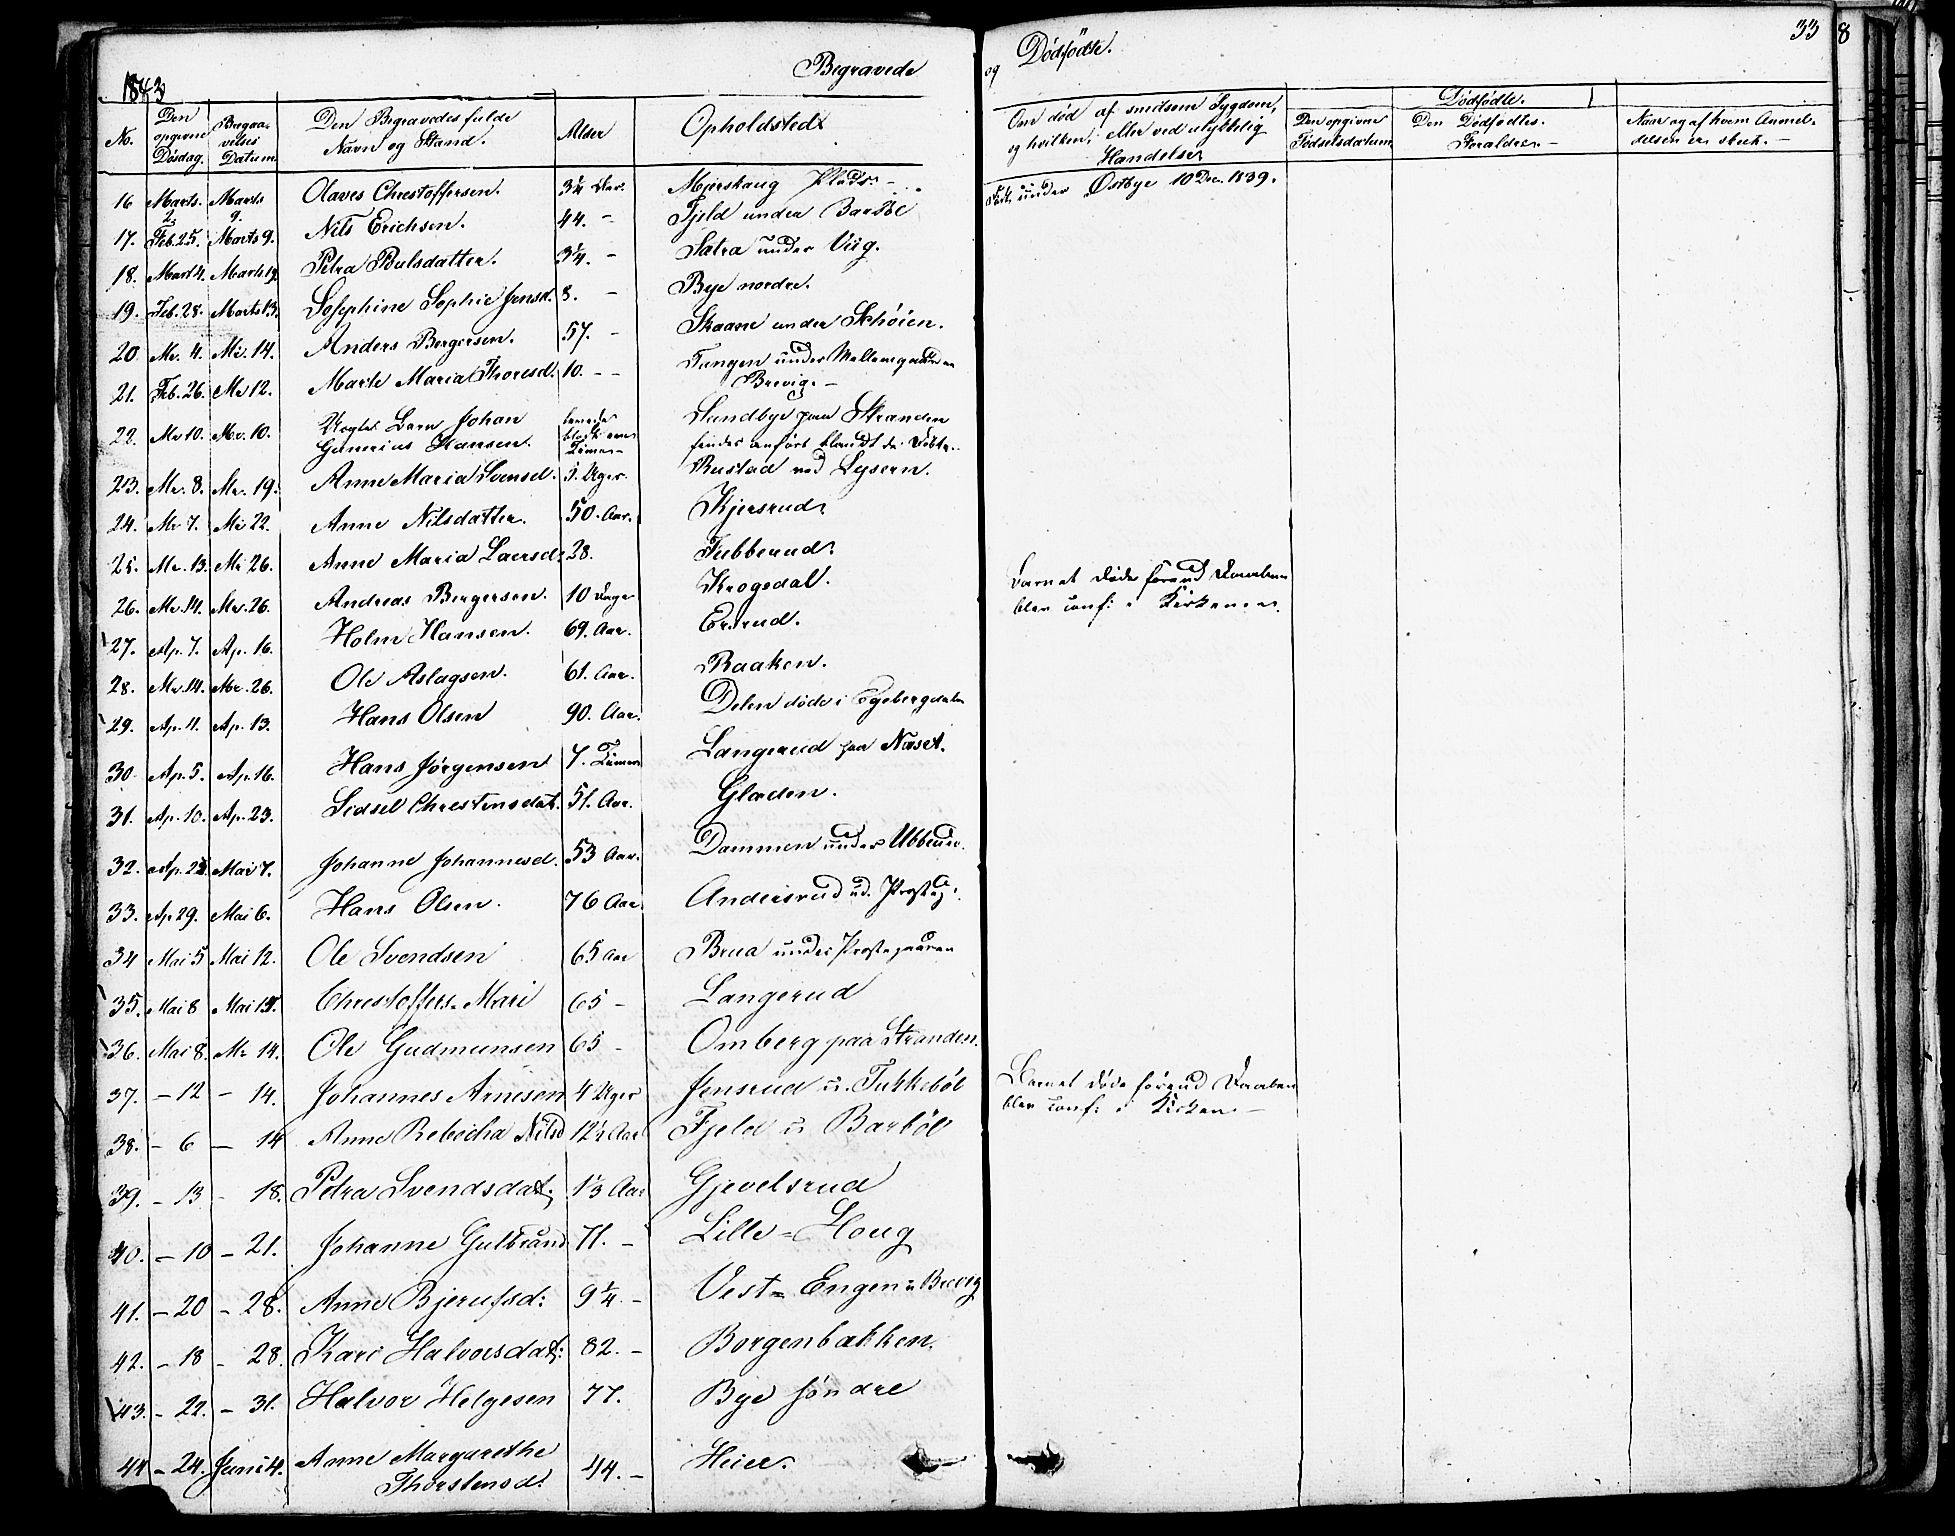 1843
Begravede
og Dødfødte.
33
8
No.
Den opgivne Dødsdag.
Begravelses Datum.
Den Begravedes fulde Navn og Stand.
Alder
Opholdsted
Om død af smitsom Sygdom, og hvilken, eller ved ulykkelig Handelse
Dødfødte.
Den opgivne Fødselsdatum
Den Dødfødtes Foraldre.
Naar og af hvem Anmeldelsen er skeet.
16 Marts. 2. Marts 9. Olaves Chrestoffersen. 3¼ Aar. Mjerskaug Plads. under Østbye 10 Dec. 1839.
17. Feb. 25. Marts 9. Nils Erichsen. 44. - Fjeld under Barbøl
18. Mart 4. Marts 12. Petra Pouls datter. 3¼. - Sætra under Viig.
19. Feb. 28. Marts 13. Josephine Sophie Jensd. 8. - Bye nordre.
20 Mr. 4. Mr. 14. Anders Bergersen. 57. - Skaane under Schøien.
21. Feb. 26. Mr 12. Marte Maria Thoresd. 10. - - Tangen under Mellemgaarden
Brevig. -
22. Mr 10. Mr. 10. Uægte Barn Johan Sundbye paa Stranden
Gunerius Hansen. levede blot een Time - findes anført blandt de Døbte.
23. Mr. 8. Mr. 19. Anne Maria Svensd. 5. Uger. Rustad ved Lysern.
24. Mr 7. Mr 22. Anne Nilsdatter. 50. Aar. Kjersrud
25. Mr. 13. Mr 26. Anne Maria Laersd. 28. Tubberud.
26. Mr. 14. Mr. 26. Andreas Bergersen. 10 Dage Krogedal. Barnet døde forend Daaben
blev conf: i Kirken.
27. Ap. 7. Ap. 16. Holm Hansen. 69. Aar. Ersrud.
28. Mr. 14. Mr. 26. Ole Aslagsen. 61. Aar. Raaken.
29. Ap. 11. Ap. 13. Hans Olsen 90. Aar. Delen døde i Egebergdalen
30 Ap. 5. Ap. 16. Hans Jørgensen 7. Timer Langerud paa Næset.
31. Ap. 10. Ap. 23. Sidsel Chrestensdat. 51. Aar. Glæden.
32. Ap. 25. Mai 7. Johanne Johannesd. 53 Aar. Dammen under Ubberud.
33. Ap 29. Mai 6. Hans Olsen. 76 Aar Andersrud ud. Prosteg.
34 Mai 5 Mai 12. Ole Svendsen 65 Aar Brua under Prostegaarden
35. Mai 8 Mai 14. Chrestoffers. Mari 65 - Langerud
36. Mai 8. Mr 14. Ole Gudmunsen 65 - Omberg paa Stranden.
37. - 12 - 14. Johannes Arnesen 4 Uger Jensrud u. Tukkebøl Barnet døde forend Daaben
blev conf: i Kirken. -
38. - 6 - 14 Anne Rebecha Nilsd 12½ Aar Fjeld u Barbøl
39. - 13 - 18. Petra Svendsdat. 1⅓ Aar Gjevelsrud
40. - 10 - 21. Johanne Gulbrand 71. - Lille = Houg
41. - 20 - 28. Anne Bjerufsd: 9¼. - Vest = Engen u Brevig
42. - 18 - 28. Kari Halvorsdat: 82. - Borgenbakken.
43. - 22. - 31. Halvor Helgesen 77. Bye søndre
44 - 24. Juni 4. Anne Margarethe
Thorstensd. 44. - Heier.